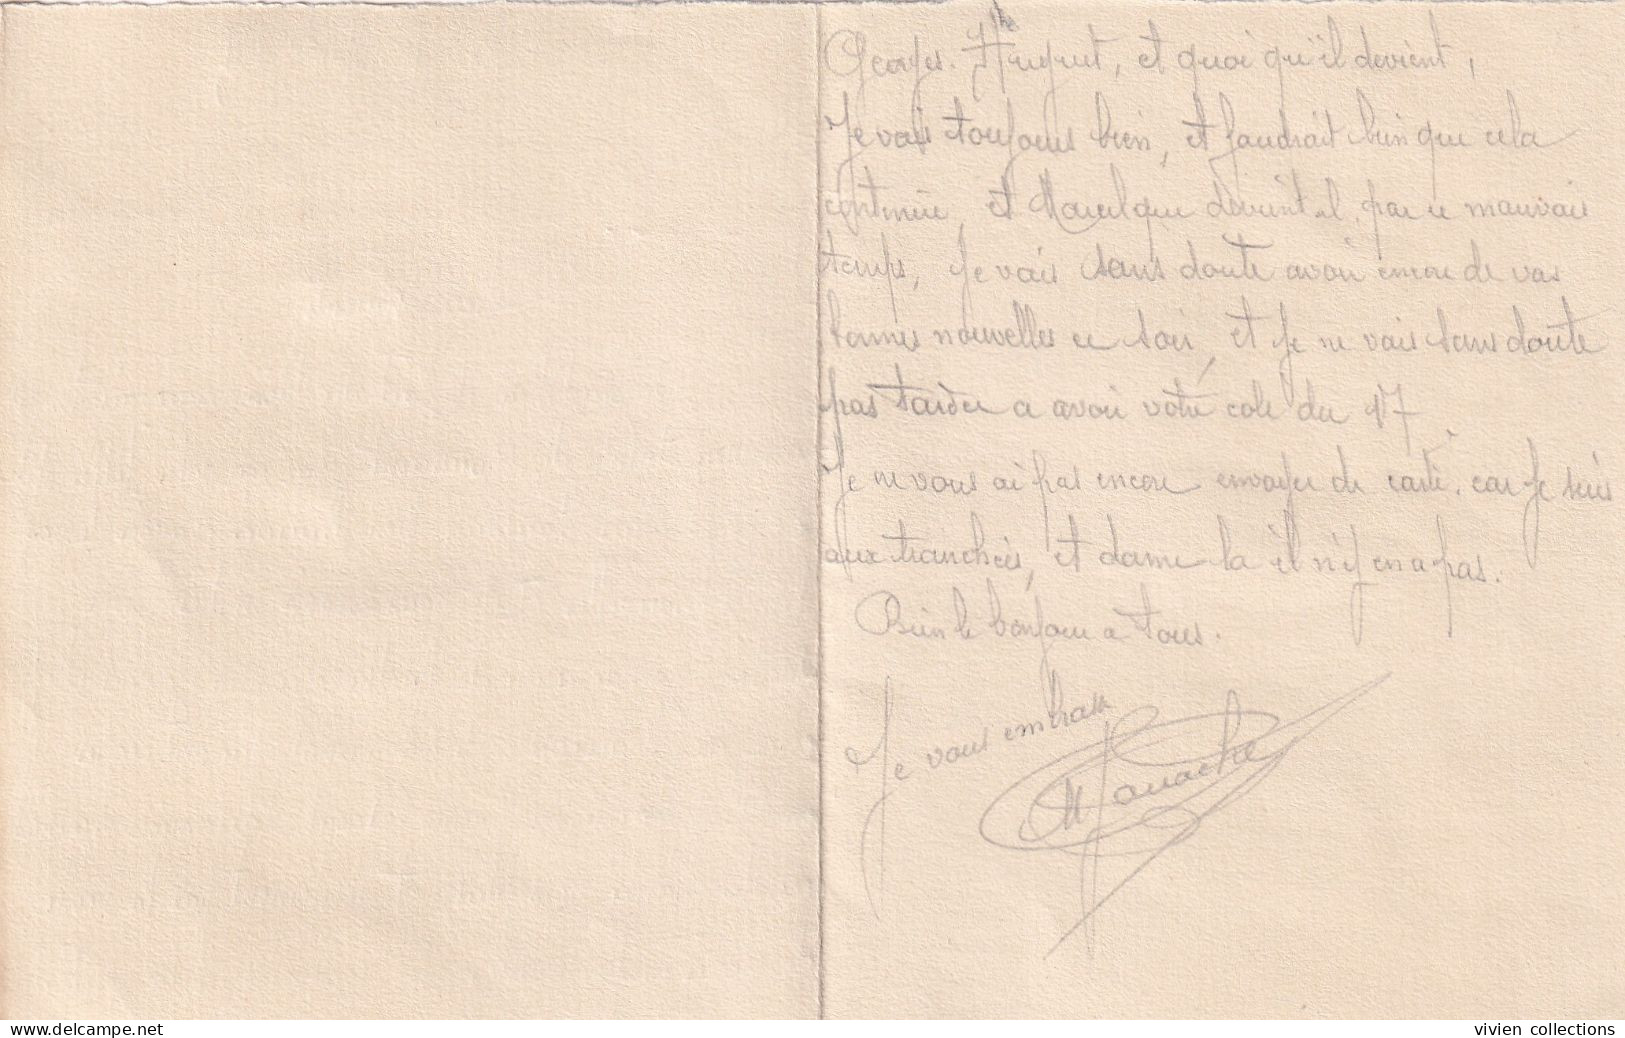 Georges. et quoi qu'il devient,
Je vais toujours bien, et faudrait bien que cela
continue, et Marcel que devient-il par ce mauvais
temps, Je vais sans doute avoir encore de vos
bonnes nouvelles ce soir, et Je ne vais sans doute
pas tarder a avoir votre colis du 17.
Je ne vous ai pas encore envoyer de carte. car Je suis
aux tranchées, et dame la il n'y en a pas.
Bien le bonjour à tous.
Je vous embrasse
www.delcampe.net
vivien collections